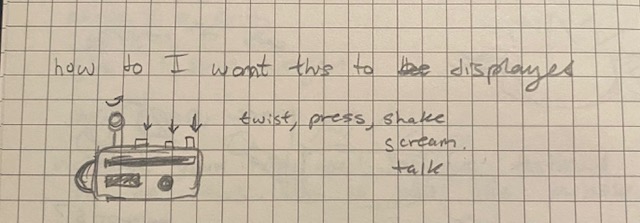 how do I want this to be displayed
twist, press, shake
scream.
talk